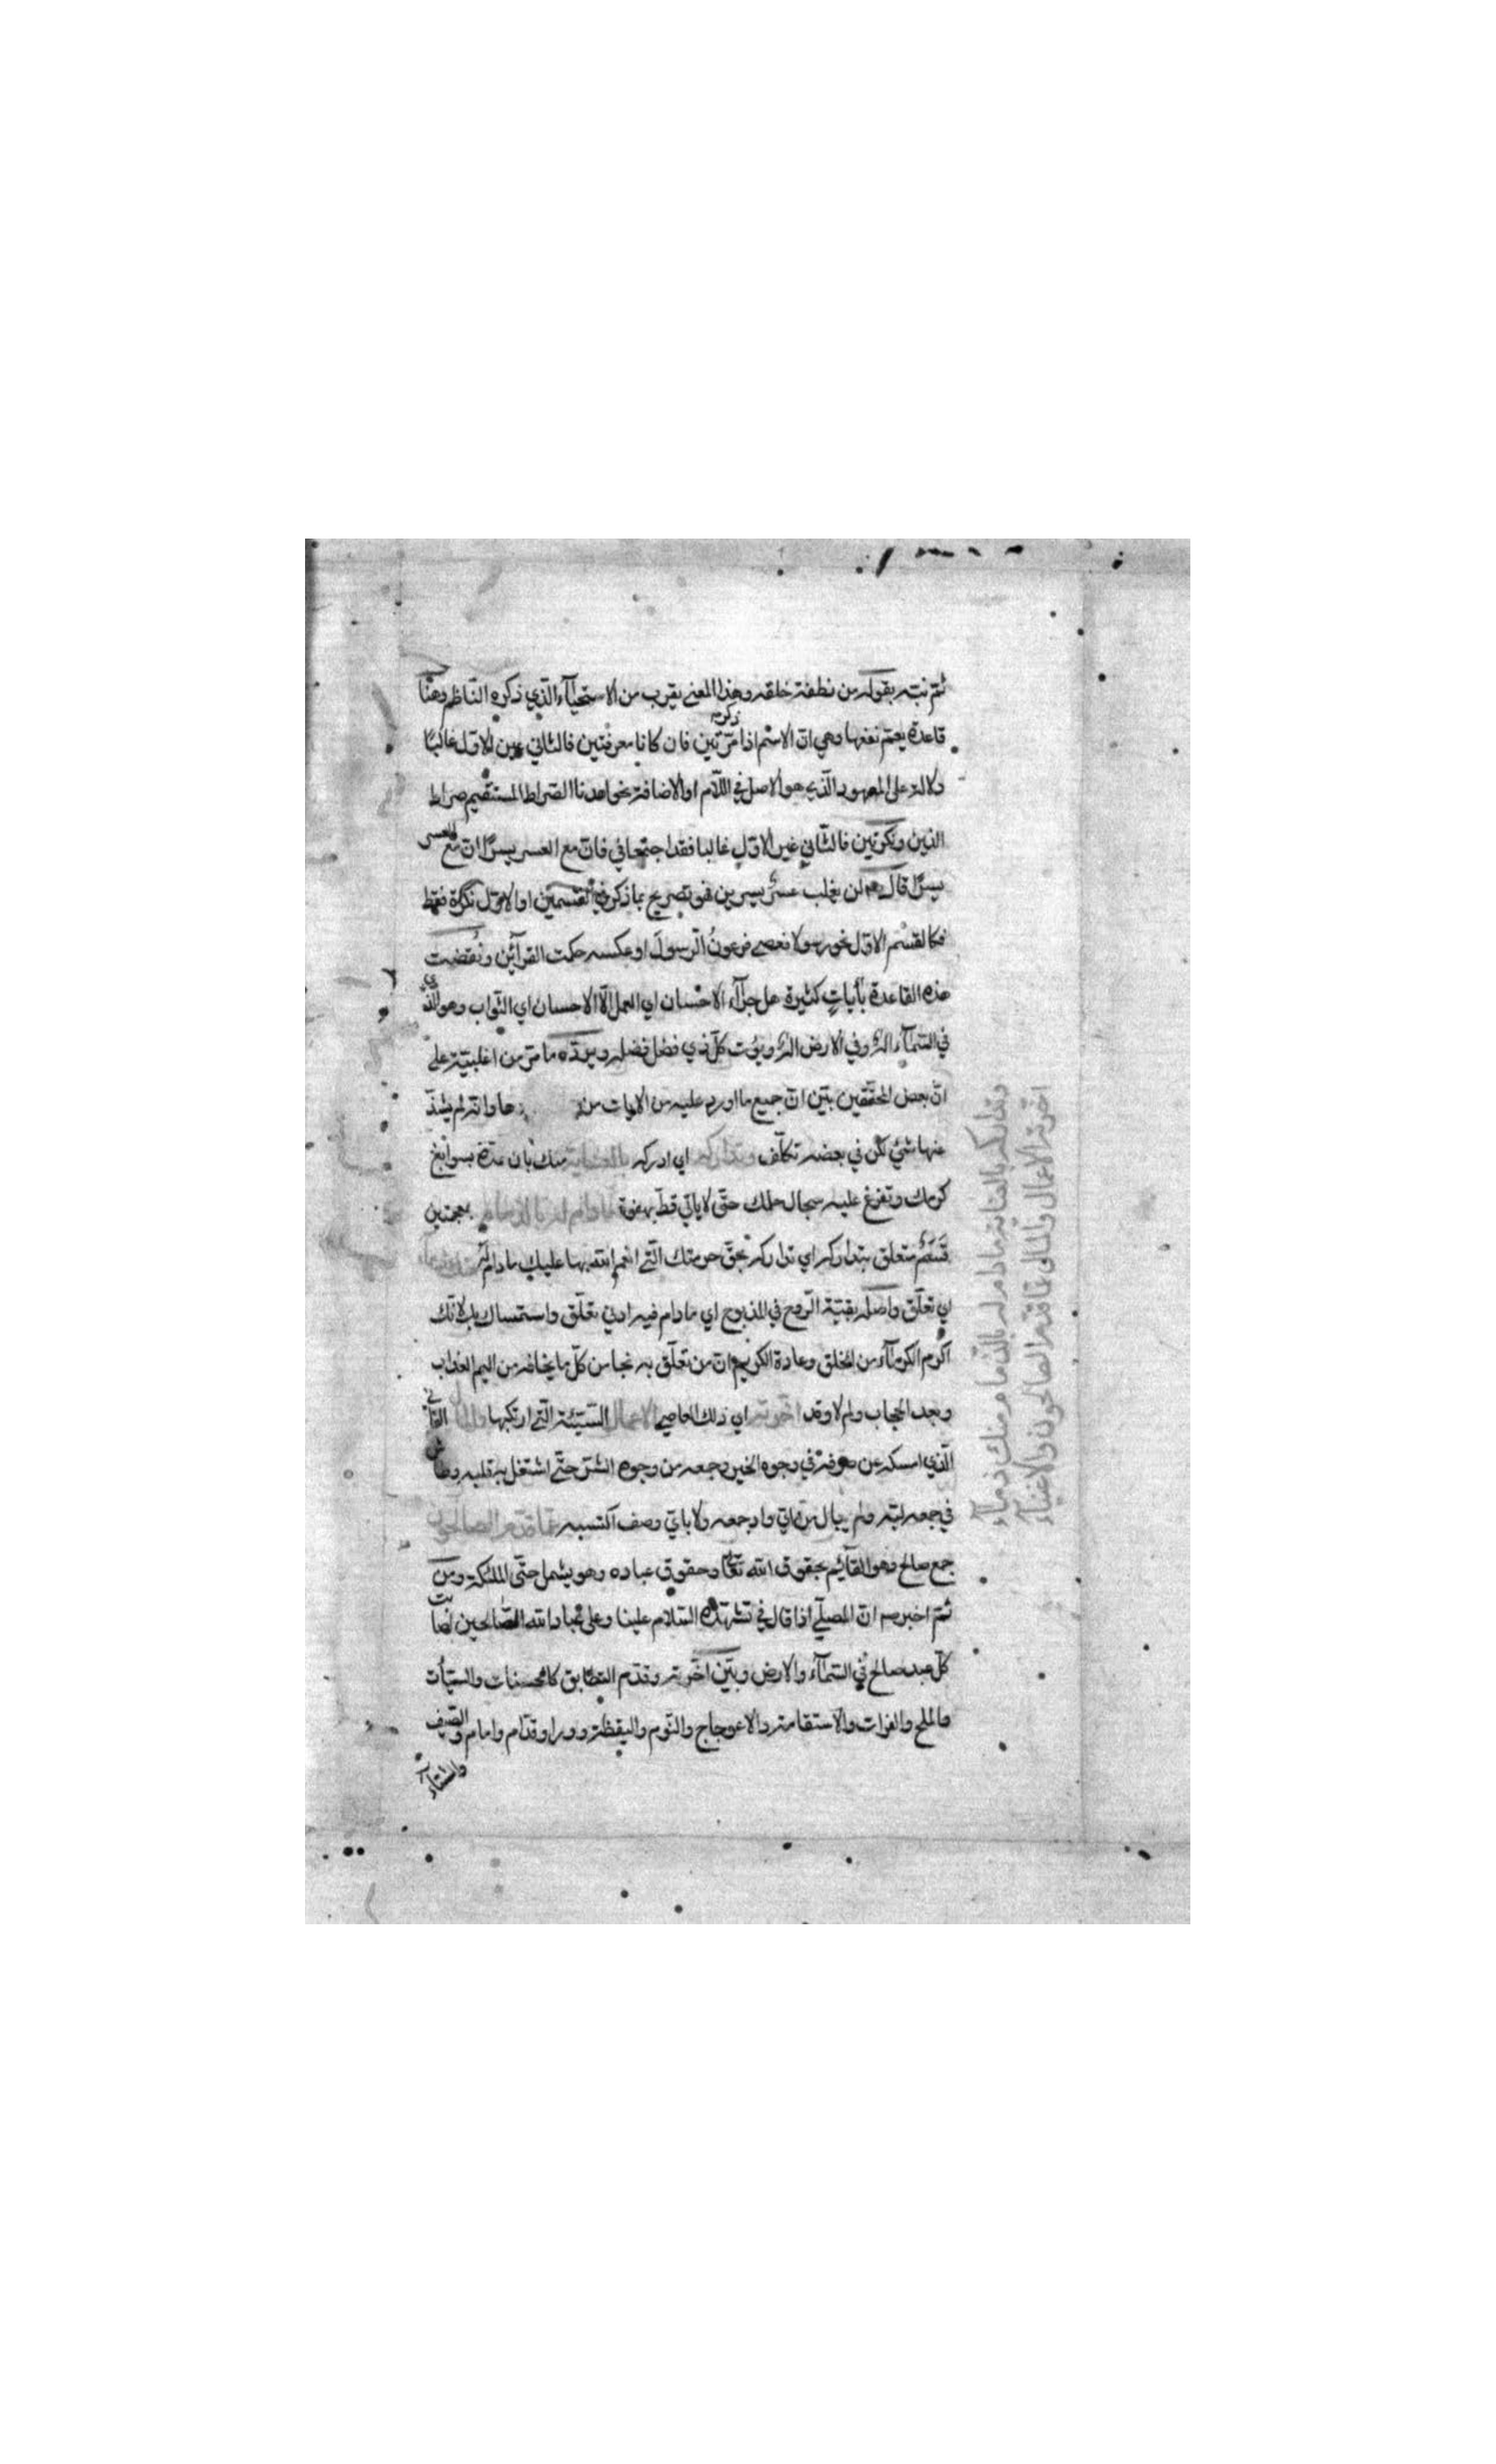 ثم نبه بقوله من نطفة خلقه وهذا المعنى يقرب من الاستحياء الذي ذكره الناظم وهنا
قاعدة يعم نفعها وهي ان الاسم اذا ذكر مرتين فان كانا معرفتين فالثاني عين الاول غالبا
دلالة على المعهود الذي هو الاصل في اللام او الاضافة نحو اهدنا الصراط المستقيم صراط
الذين ونكرتين فالثاني غير الاول غالبا فقد اجتمعا في فان مع العسر يسرا ان مع العسر
يسرا قال لن يغلب عسر يسرين فهو تصريح بما ذكر في القسمين او الاول نكرة فقط
فكالقسم الاول نحو رسولا فعصى فرعونُ الرسولَ او عكسه حكمت القرائن ونُقضت
هذه القاعدة بأيات كثيرة هل جزاء الاحسان اي العمل الا الاحسان اي الثواب وهو الذي
في السماء اله وفي الارض اله ويؤت كل ذي فضل فضله ويرده ما مر من اغلبيته على
ان بعض المحققين بين ان جميع ما اورد عليه من الايات من ها وانه لم يشذ
عنها شئ لكن في بعضه تكلف وتداركه اي ادركه بالعناية منك بان تمده بسوابغ
كرمك وتفرغ عليه سجال حلمك حتى لا ياتي قط بهفوة مادام له بالذمام بمعجمتين
قَسَمٌ متعلق بتداركه اي تداركه بحق حرمتك التي انعم الله بها عليك مادام له منك ذماء
اي تعلق واصله بقية الروح في المذبوح اي مادام فيه ادنى تعلق واستمساك بك لانك
اكرم الكرماء من الخلق وعادة الكريم ان من تعلق به نجا من كل ما يخافه من اليم العذاب
وبعد الحجاب ولم لا وقد اخرته اي ذلك العاصي الاعمال السيئة التي ارتكبها والمال الفاني
الذي امسكه عن صرفه في وجوه الخير وجمعه من وجوه الشر حتى اشتغل به قلبه وطاش
في جمعه لبه ولم يبال من واد جمعه ولا باي وصف اكتسبه عما قدم الصالحون
جمع صالح وهو القائم بحقوق الله تعالى وحقوق عباده وهو يشمل حتى الملئكة ومن
ثم اخبر ص ان المصلي اذا قال في تشهده السلام علينا وعلى عباد الله الصالحين اصابت
كل عبد صالح في السماء والارض وبين اخرته وقدم الطباق كالحسنات والسيئات
والملح والفرات والاستقامة والاعوجاج والنوم واليقظة وورا وقدام وامام والصيف
والشتاء
وتداركه بالعناية مادام له بالذمام منك ذماء
اخرته الاعمال والمال عما قدم الصالحون والاغنياء